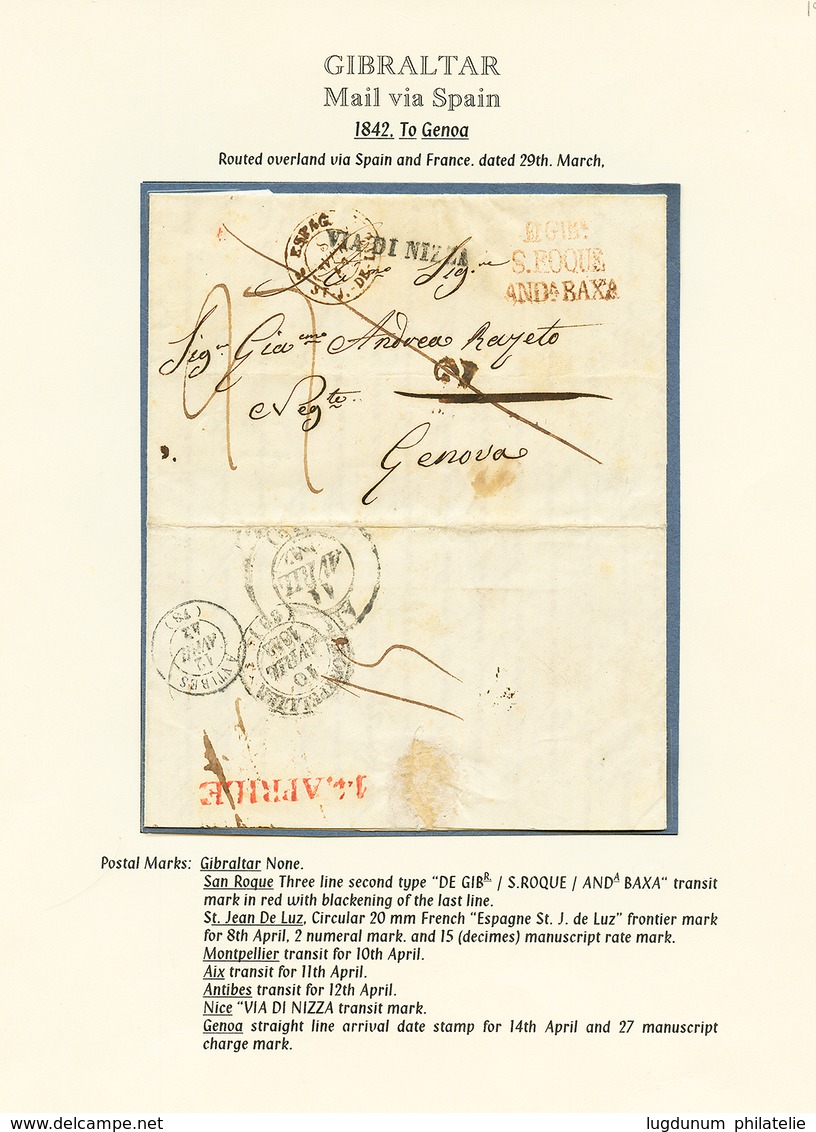 GIBRALTAR
Mail via Spain
1842. To Genoa
Routed overland via Spain and France. dated 29th. March,
ESPAG.
ST-J.-DE-LUZ
VIA DI NIZZA
S.ROQUE
ANDA BAXA
Sigre
Sigr Giacmo Andrea Razeto
Negte
Genova
11
AVRIL
10
AVRIL
1842
MONTPELLIER
12
AVRIL
42
ANTIBES
(78)
14. APRILE
Postal Marks: Gibraltar None.
San Roque Three line second type "DE GIBR. / S.ROQUE / ANDA BAXA" transit
mark in red with blackening of the last line.
St. Jean De Luz, Circular 20 mm French "Espagne St. J. de Luz" frontier mark
for 8th April, 2 numeral mark. and 15 (decimes) manuscript rate mark.
Montpellier transit for 10th April.
Aix transit for 11th April.
Antibes transit for 12th April.
Nice "VIA DI NIZZA transit mark.
Genoa straight line arrival date stamp for 14th April and 27 manuscript
charge mark.
www.delcampe.net
lugdunum philatelie